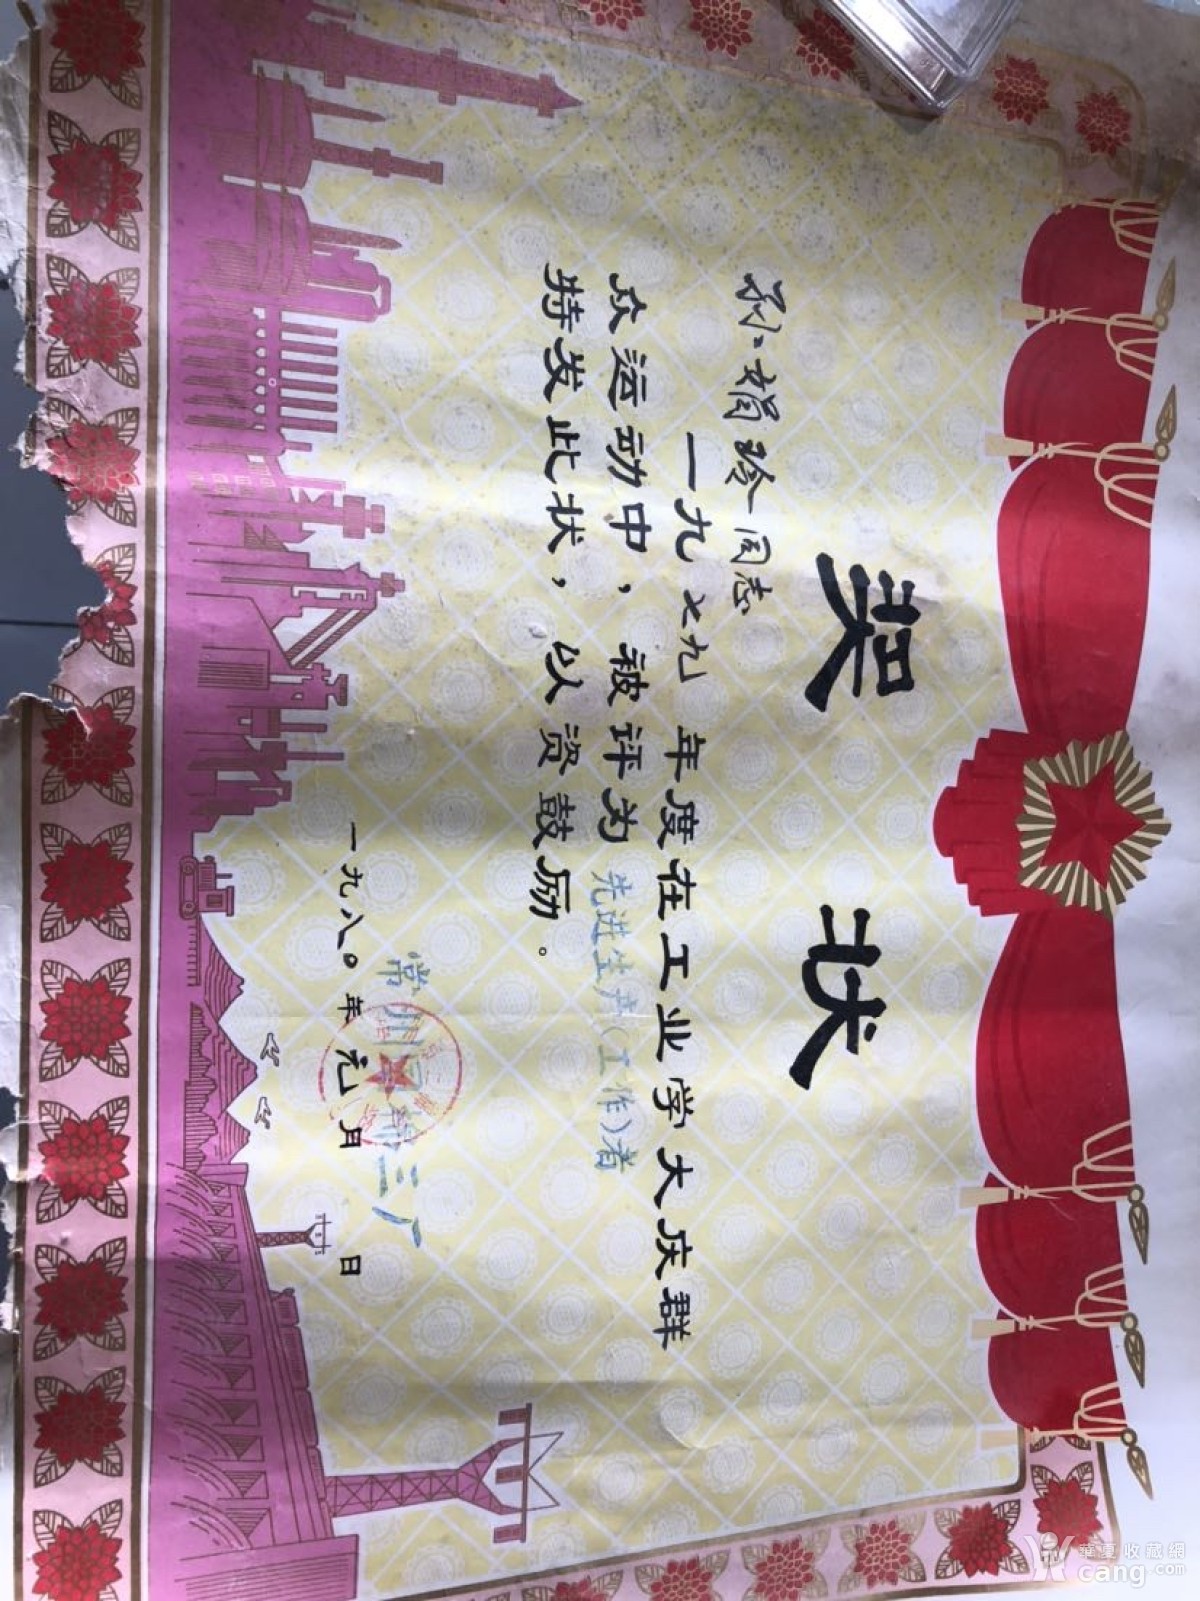 奖状
孙娟玲同志
一九七九年度在工业学大庆群
众运动中，被评为先进生产（工作）者
特发此状，以资鼓励。
三厂
一九八〇年元月 日
華夏收藏網
cang.com